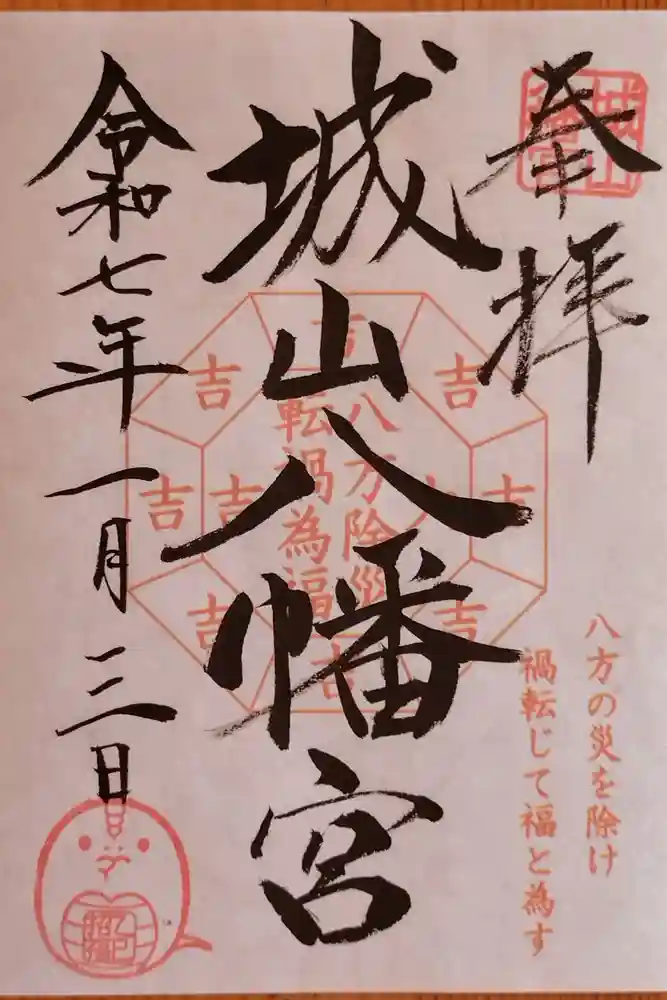 奉拝
八方の災を除け
禍転じて福と為す
城山八幡宮
八方除災
転禍為福
吉
吉
吉
吉
吉
吉
吉
吉
令和七年一月三日